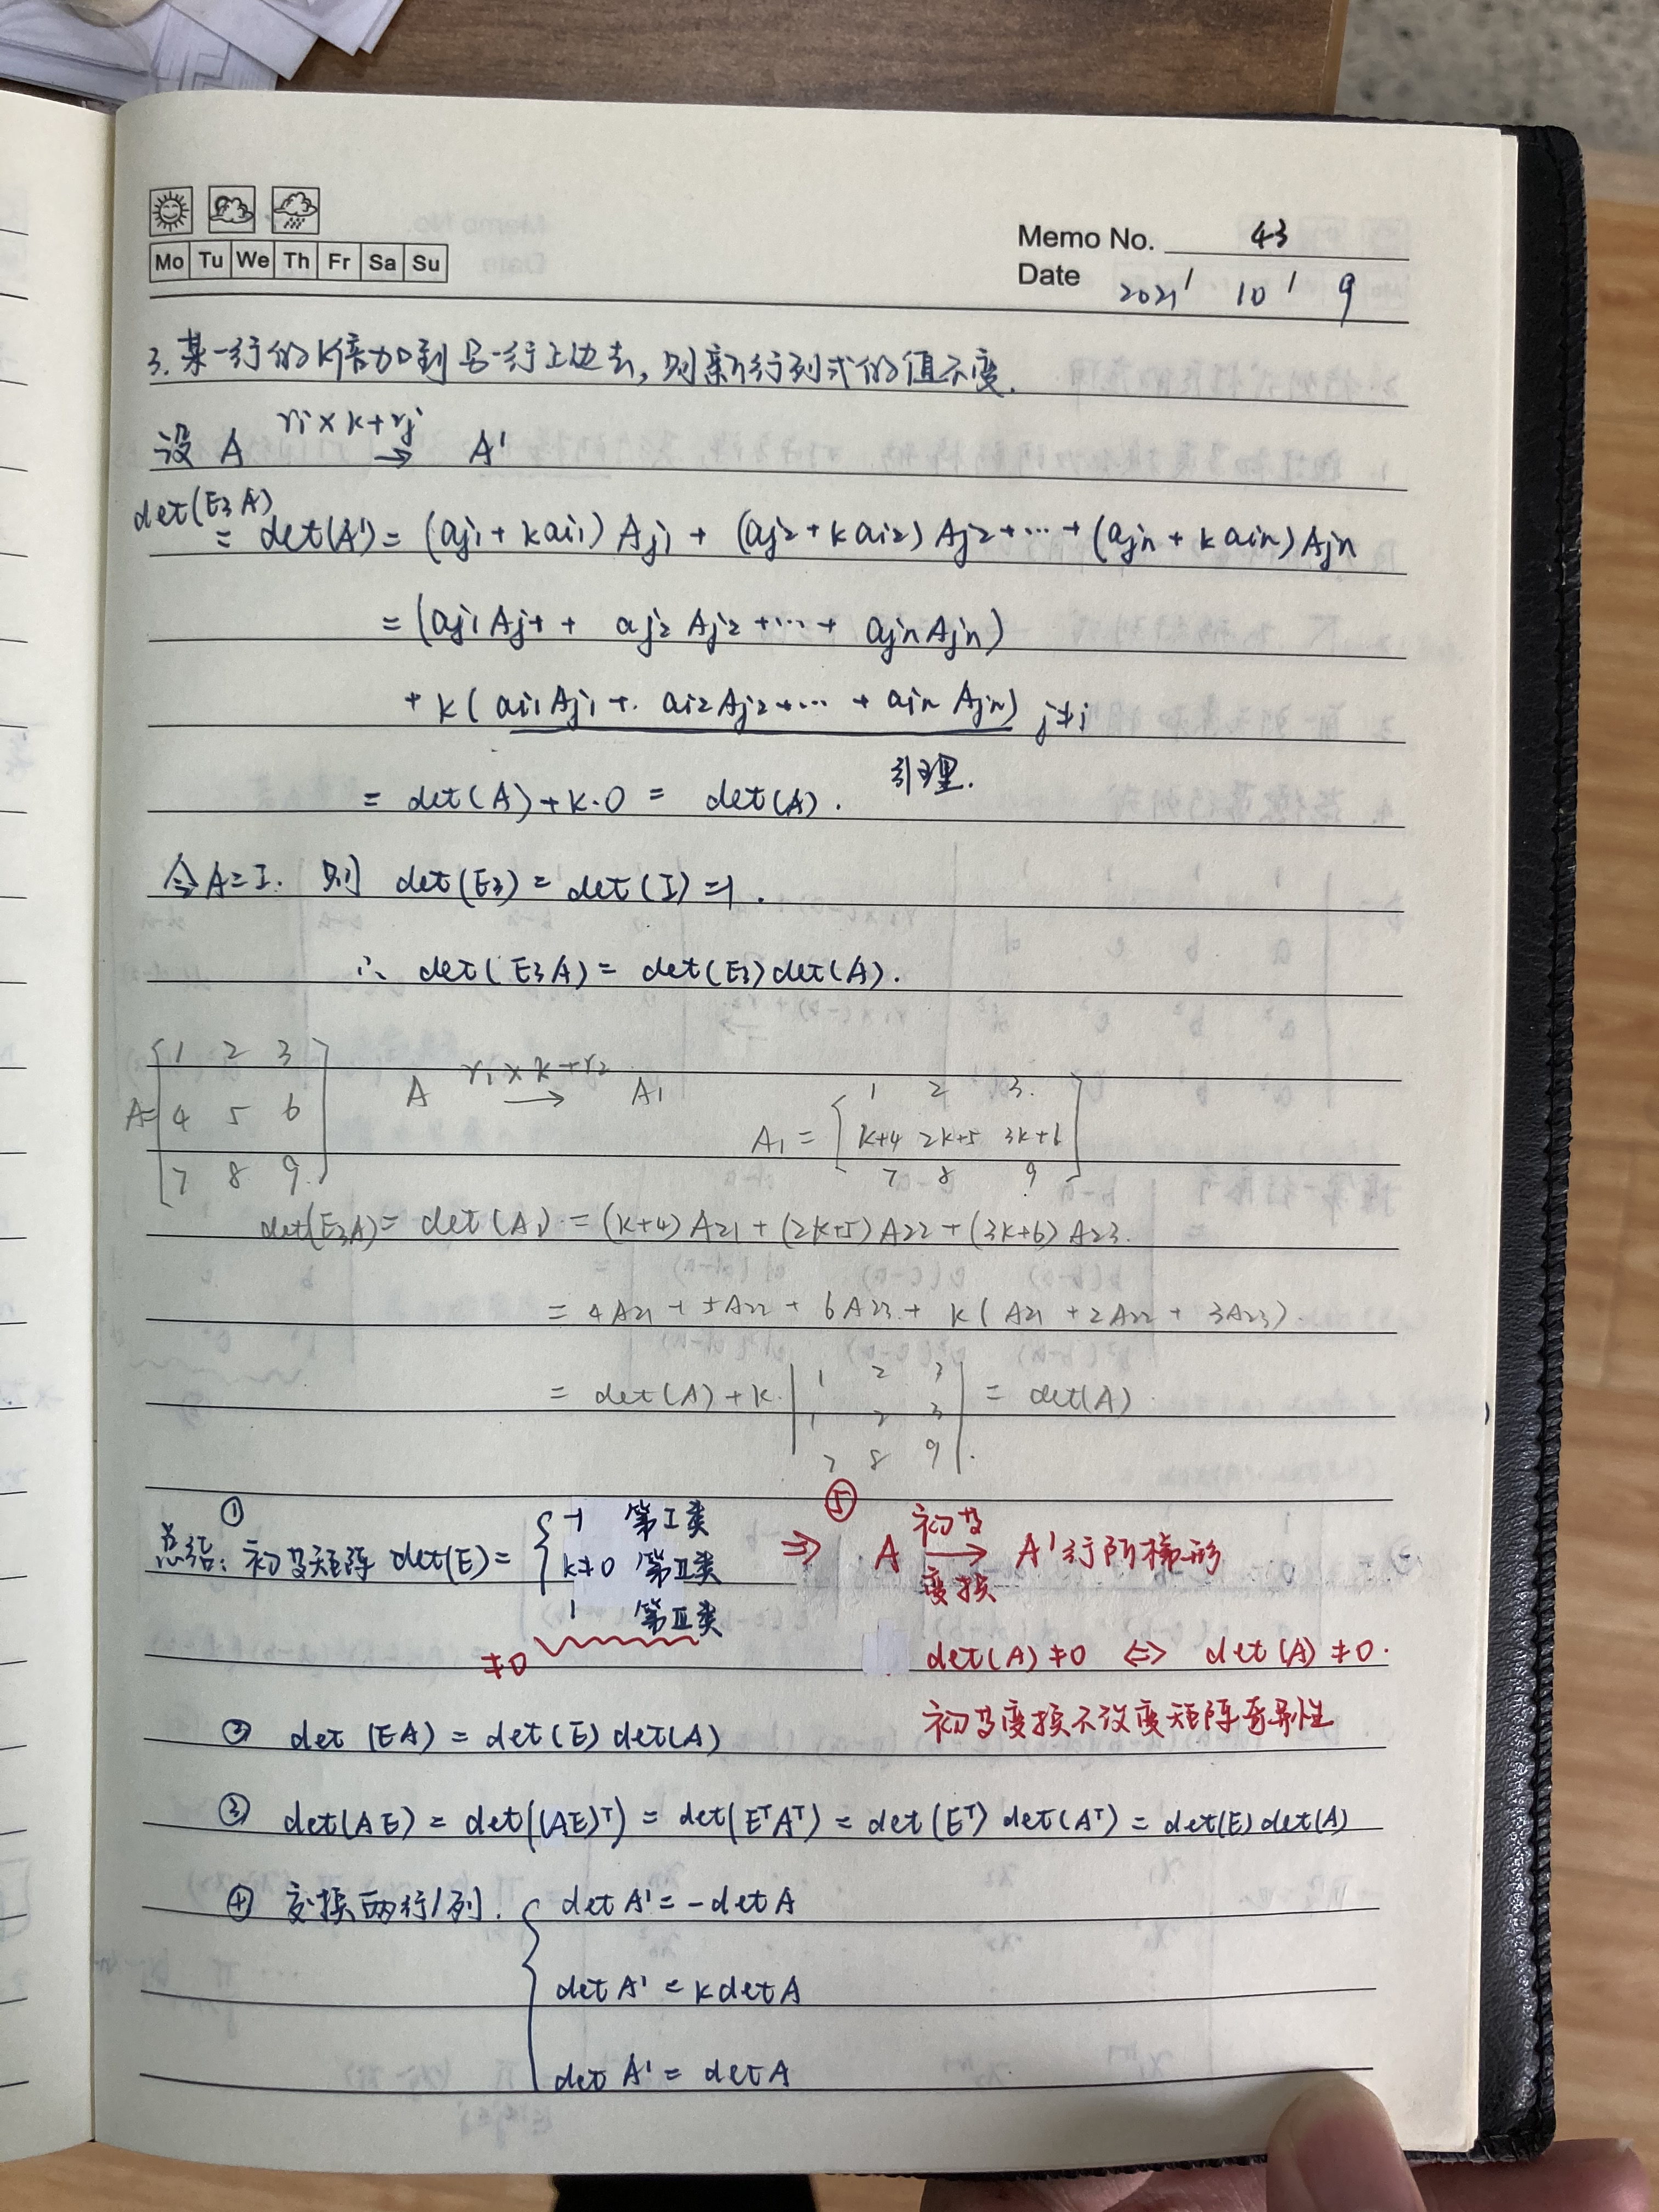 Memo No. 43
Mo Tu We Th Fr Sa Su
Date 2021 / 10 / 9
3. 某一行的k倍加到另一行上边去, 则新行列式的值不变.
设 A ri×k+rj → A'
det(E3A)
= det(A') = (aj1+kai1)Aj1 + (aj2+kai2)Aj2+⋯+(ajn+kain)Ajn
= (aj1Aj1 + aj2Aj2+⋯+ ajnAjn)
+ k(ai1Aj1+ ai2Aj2+⋯+ainAjn) j≠i
引理.
= det(A)+k·0 = det(A).
令A=I. 则 det(E3) = det(I)=1.
∴ det(E3A) = det(E3)det(A).
A= [1 2 3
4 5 6
7 8 9]
A r1×k+r2 → A1
A1 = [1 2 3.
k+4 2k+5 3k+6
7 8 9]
det(E3A) = det(A1) = (k+4)A21+(2k+5)A22+(3k+6)A23.
= 4A21+5A22+6A23+k(A21+2A22+3A23).
= det(A)+k· |1 2 3
1 2 3
7 8 9| = det(A).
总结: ① 初等矩阵 det(E)= { -1 第I类
k≠0 第II类
1 第II类
≠0
⇒ ⑤ A 初等变换 → A'行阶梯形
det(A)≠0 ⇔ det(A)≠0.
初等变换不改变矩阵奇异性
② det(EA) = det(E)det(A)
③ det(AE) = det((AE)ᵀ) = det(EᵀAᵀ) = det(Eᵀ)det(Aᵀ) = det(E)det(A)
④ 交换两行/列. { det A' = -det A
det A' = k det A
det A' = det A